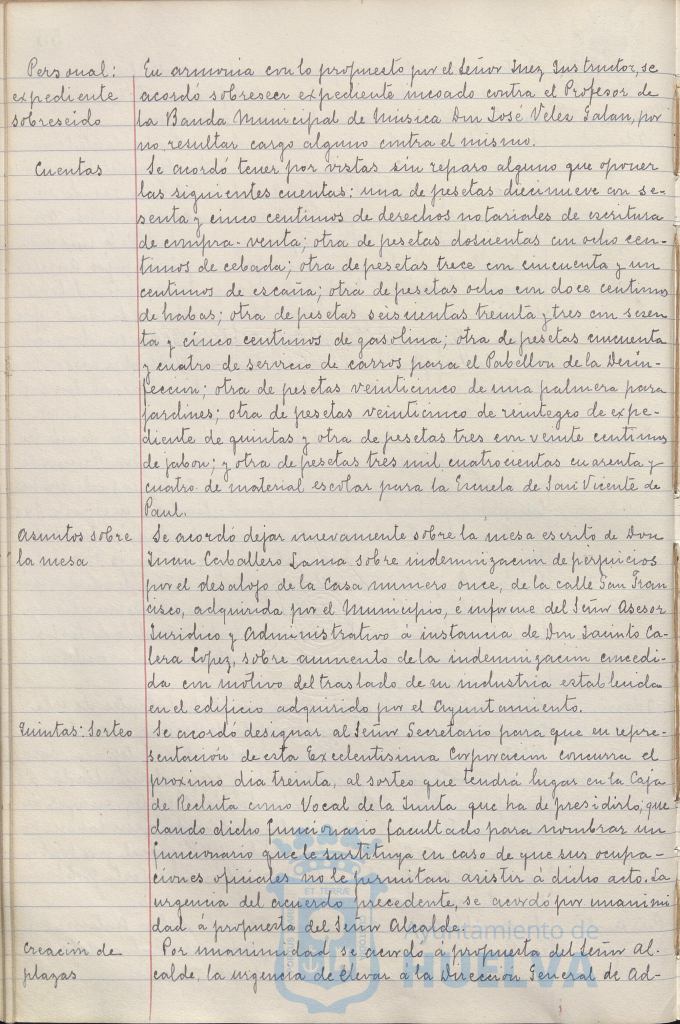 Personal:
expediente
sobreseido
En armonia con lo propuesto por el Señor Juez Instructor, se
acordó sobreseer expediente incoado contra el Profesor de
la Banda Municipal de Música Don José Velez Galan, por
no resultar cargo alguno contra el mismo.
Cuentas
Se acordó tener por vistas sin reparo alguno que oponer
las siguientes cuentas: una de pesetas diecinueve con se-
senta y cinco centimos de derechos notariales de escritura
de compra-venta; otra de pesetas doscuentas con ocho cen-
timos de cebada; otra de pesetas trece con cincuenta y un
centimos de escaña; otra de pesetas ocho con doce centimos
de habas; otra de pesetas seiscuentas treinta y tres con sesen
ta y cinco centimos de gasolina; otra de pesetas cincuenta
y cuatro de servicio de carros para el Pabellon de la Desin-
feccion; otra de pesetas veinticinco de una palmera para
jardines; otra de pesetas veinticinco de reintegro de expe-
diente de quintas y otra de pesetas tres con veinte centimos
de jabon; y otra de pesetas tres mil cuatrocientas cuarenta y
cuatro de material escolar para la Escuela de San Vicente de
Paul.
Asuntos sobre
la mesa
Se acordó dejar nuevamente sobre la mesa escrito de Don
Juan Caballero Lama sobre indemnizacion de perjuicios
por el desalojo de la Casa numero once, de la calle San Fran
cisco, adquirida por el Municipio, é informe del Señor Asesor
Juridico y Administrativo á instancia de Don Jacinto Ca-
lera Lopez, sobre aumento de la indemnizacion concedi-
da con motivo del traslado de su industria establecida
en el edificio adquirido por el Ayuntamiento.
Quintas: Sorteo
Se acordó designar al Señor Secretario para que en repre-
sentación de esta Excelentisima Corporacion concurra el
proximo dia treinta, al sorteo que tendrá lugar en la Caja
de Recluta como Vocal de la Junta que ha de presidirlo; que
dando dicho funcionario facultado para nombrar un
funcionario que le sustituya en caso de que sus ocupa-
ciones oficiales no le permitan asistir á dicho acto. La
urgencia del acuerdo precedente, se acordó por unanimi
dad á propuesta del Señor Alcalde.
Creación de
plazas
Por unanimidad se acordó a propuesta del Señor Al-
calde, la urgencia de elevar á la Direccion General de Ad-
Ayuntamiento de
HUELVA